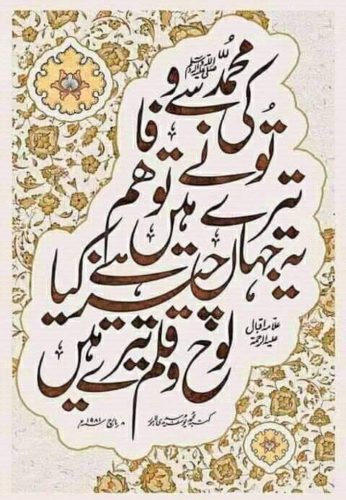 کی محمد ﷺ سے وفا
تُو نے تو هم
تیرے ہیں
یہ جہاں چیز ہے کیا
لوح و قلم تیرے ہیں
علامہ اقبال
علیہ الرحمۃ
مارچ ۱۹۸۱